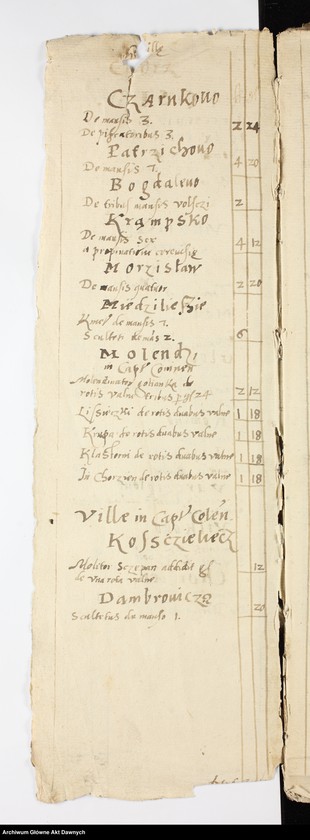 Villę
Czarnkowo
De mansis 3.
De piscatoribus 3. 2 24
Patrzichowo
De mansis 7. 4 20
Bogdalewo
De tribus mansis 2
Krampsko
De mansis sex 4 12
a propinatione cerevisię
Morzisław
De mansis quatuor 2 20
Miedzilieszie
Kmet. de mansis 7.
Scultet. de mā: 2. 6
Molendi,
in Capłi comuni
Molendinator de
rotis valne tribus p gł 24 2 12
Lissieczki de rotis duabus valne 1 18
Krupa de rotis duabus valne 1 18
Klasztorni de rotis duabus valne 1 18
In Chorzen de rotis duabus valne 1 18
Villę in Capłi Colen.
Kossczieliecz
Molitor Sczepan addidit gł
de vna rota valne 12
Dambrowicza
Scultetus de manso 1. 20
Archiwum Główne Akt Dawnych